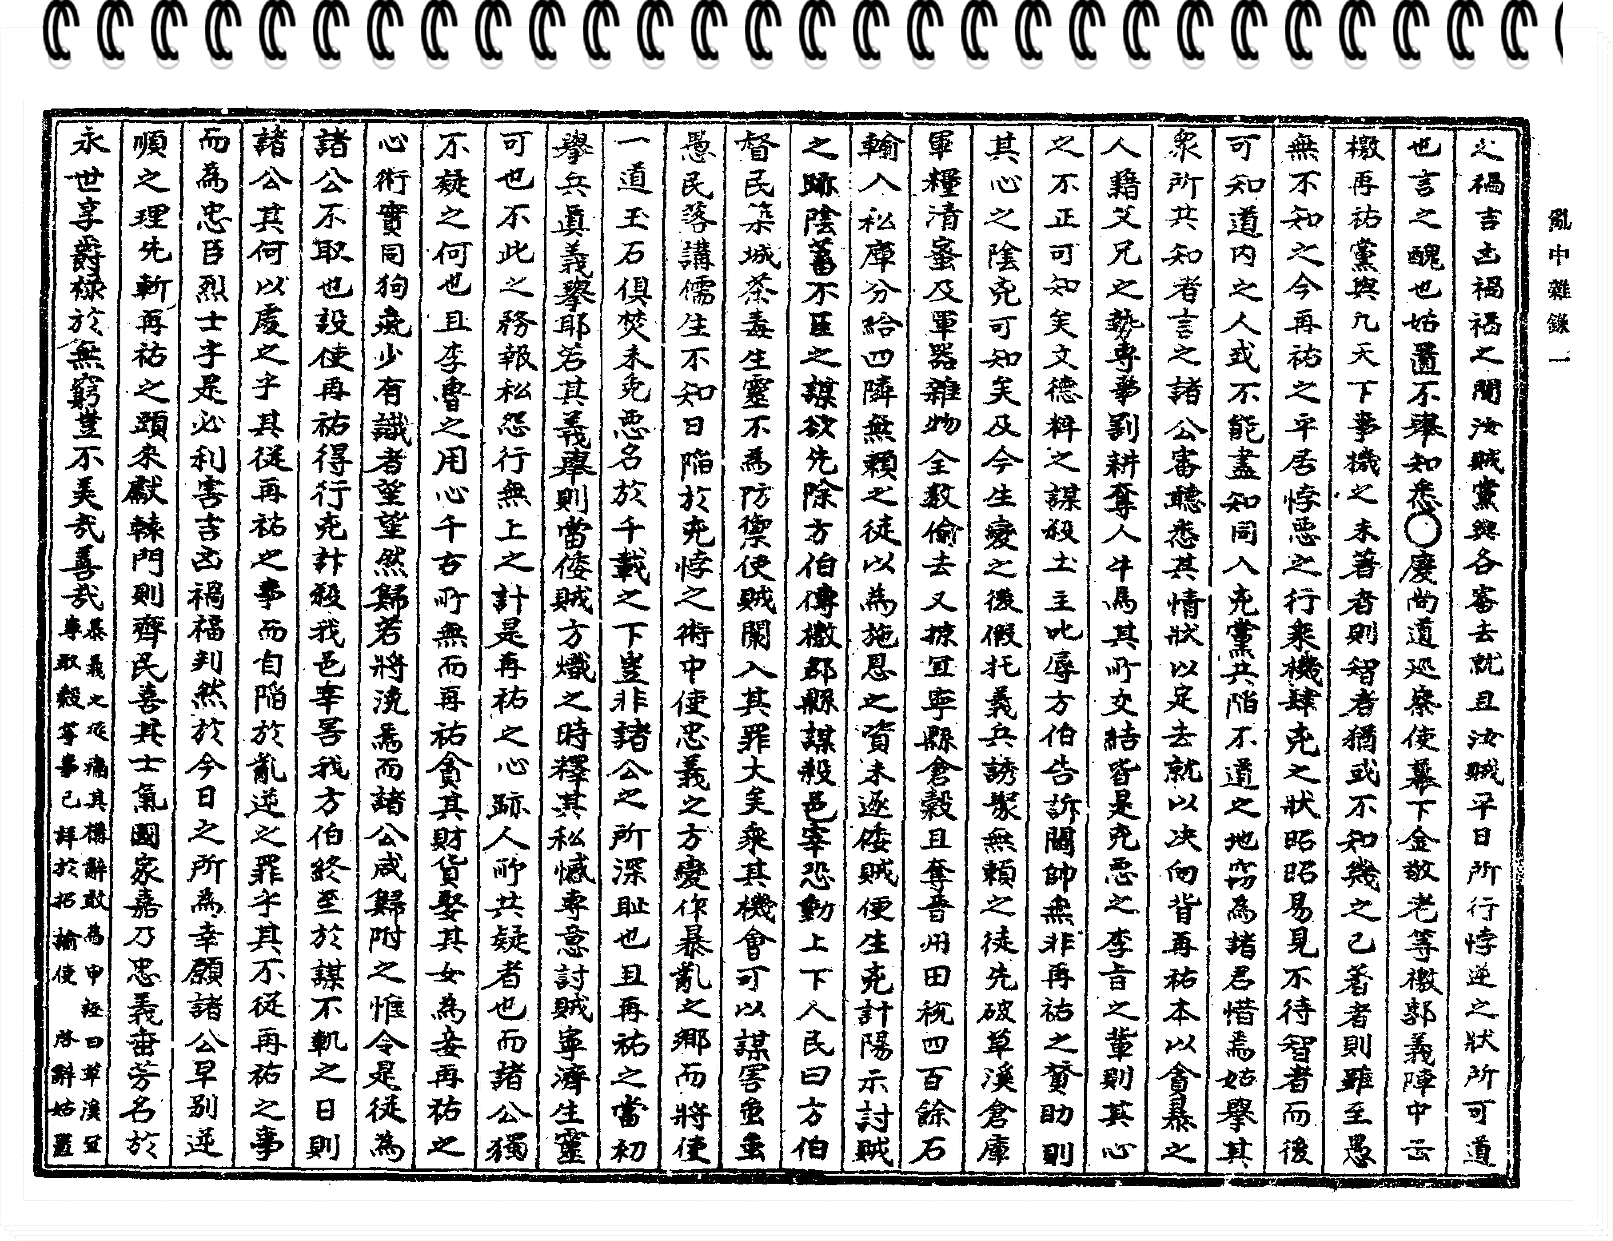 亂中雜錄一
之禍吉凶禍福之間汝賊黨與各審去就且汝賊平日所行悖逆之狀所可道
也言之醜也姑置不擧知悉○慶尙道巡察使幕下金敬老等檄郭義陣中云
檄再祐黨與凡天下事機之未著者則智者猶或不知幾之已著者則雖至愚
無不知之今再祐之平居悖惡之行乘機肆兇之狀昭昭易見不待智者而後
可知道內之人或不能盡知同入兇黨共陷不道之地窃爲諸君惜焉姑擧其
衆所共知者言之諸公審聽悉其情狀以定去就以决向背再祐本以貪暴之
人籍父兄之勢專事剥耕奪人牛馬其所交結皆是兇惡之李旨之輩則其心
之不正可知矣文德粹之謀殺土主叱辱方伯告訴閫帥無非再祐之贊助則
其心之陰兇可知矣及今生變之後假托義兵誘聚無賴之徒先破草溪倉庫
軍糧淸蜜及軍器雜物全數偷去又掠宜寧縣倉穀且奪晉州田稅四百餘石
輸入私庫分給四隣無賴之徒以爲施恩之資未逐倭賊便生兇計陽示討賊
之跡陰蓄不臣之謀欲先除方伯傳檄郡縣謀殺邑宰恐動上下人民曰方伯
督民築城荼毒生靈不爲防禦使賊闌入其罪大矣乘其機會可以謀害蚩蚩
愚民落講儒生不知日陷於兇悖之術中使忠義之方變作暴亂之鄉而將使
一道玉石俱焚未免惡名於千載之下豈非諸公之所深耻也且再祐之當初
擧兵眞義擧耶若其義擧則當倭賊方熾之時釋其私憾專意討賊寧濟生靈
可也不此之務報私怨行無上之計是再祐之心跡人所共疑者也而諸公獨
不疑之何也且李曺之用心千古所無而再祐貪其財貨娶其女爲妾再祐之
心術實同狗彘少有識者望望然歸若將浼焉而諸公咸歸附之惟令是從爲
諸公不取也設使再祐得行兇計殺我邑宰害我方伯終至於謀不軌之日則
諸公其何以處之乎其從再祐之事而自陷於亂逆之罪乎其不從再祐之事
而爲忠臣烈士乎是必利害吉凶禍福判然於今日之所爲幸願諸公早別逆
順之理先斬再祐之頭來獻轅門則齊民喜其士氣國家嘉乃忠義垂芳名於
永世享爵祿於無窮豈不美哉善哉
暴義之 痛其構辭敢爲申 曰草溪宜
專取穀等事已詳於招諭使 啓辭姑置